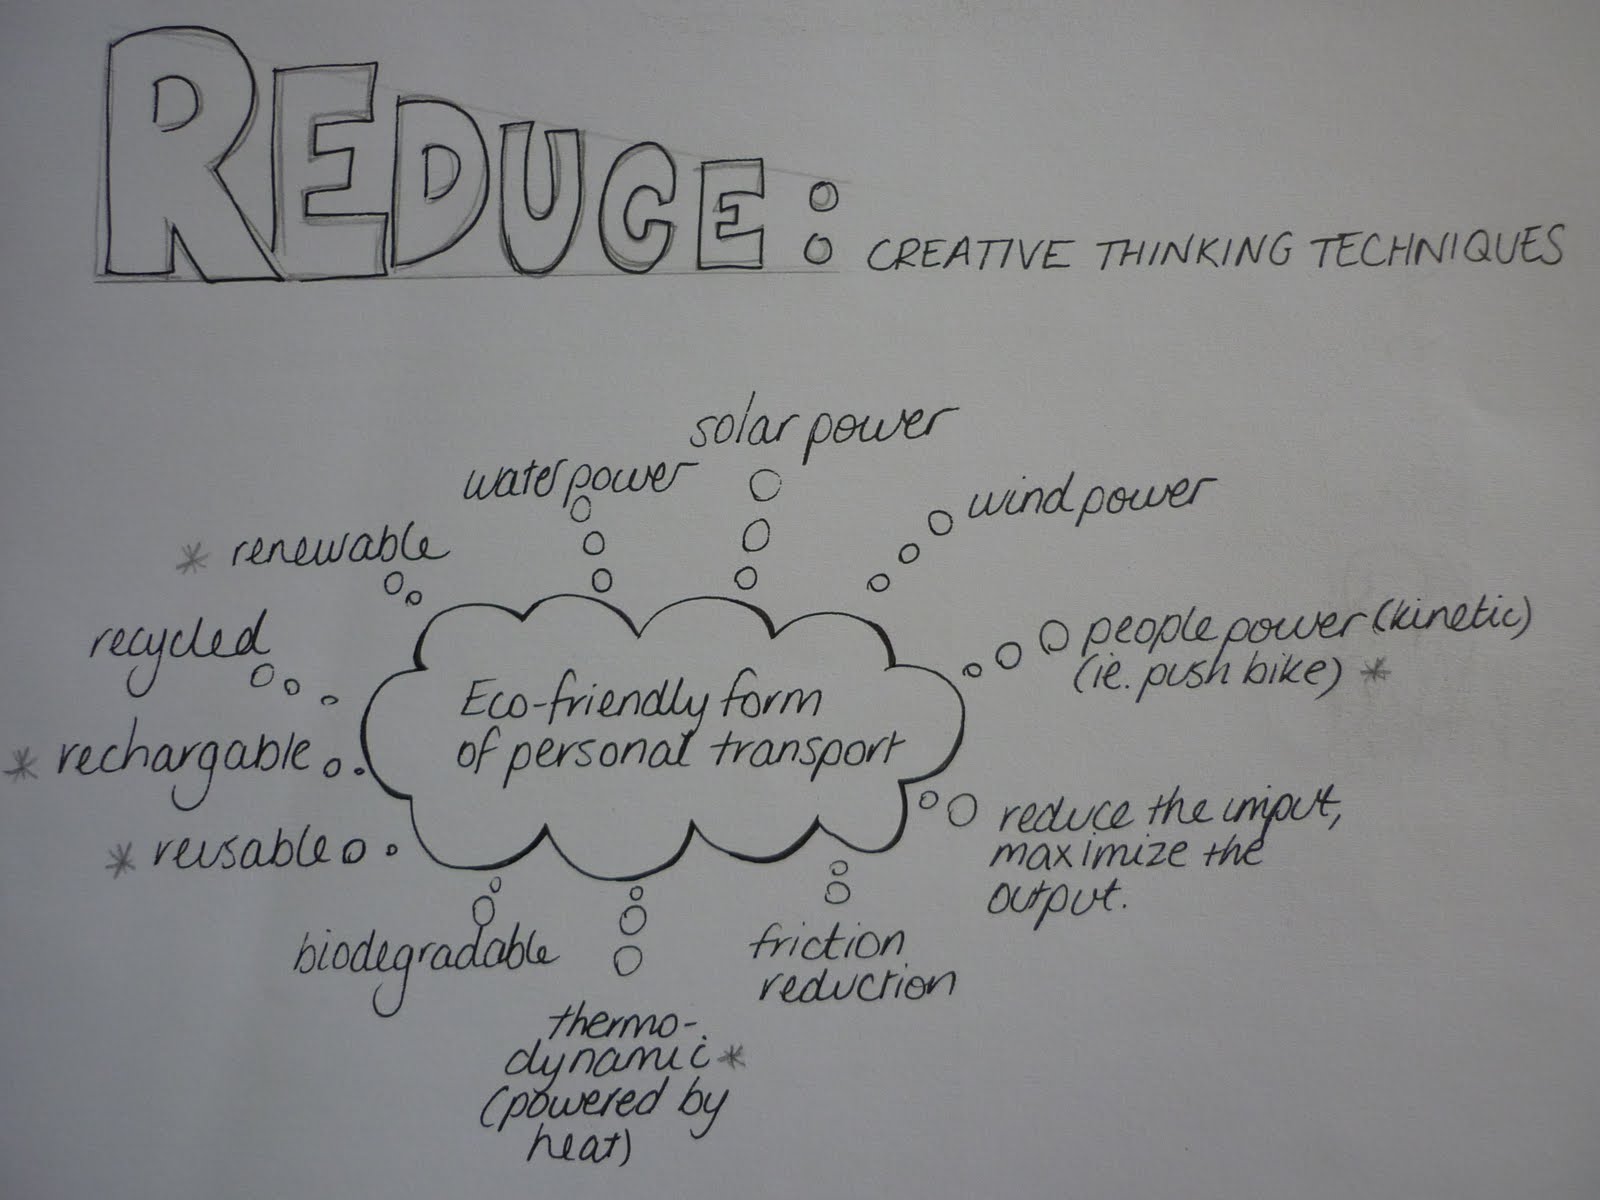 REDUCE: CREATIVE THINKING TECHNIQUES
solar power
water power
wind power
* renewable
people power (kinetic)
(ie. push bike) *
recycled
Eco-friendly form
of personal transport
* rechargable
reduce the imput,
maximize the
output.
* reusable
biodegradable
friction
reduction
thermo-
dynamic *
(powered by
heat)